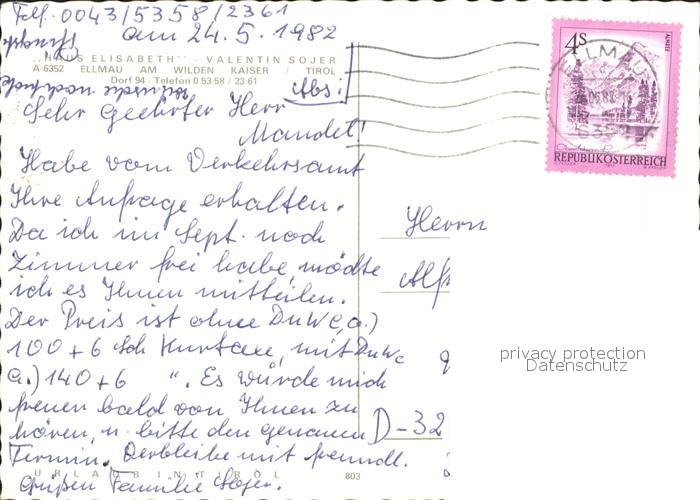 Telf. 0043/5358/2361
am 24.5.1982
"HAUS ELISABETH" - VALENTIN SOJER
A-6352 ELLMAU AM WILDEN KAISER / TIROL
Dorf 94 - Telefon 0 53 58 / 23 61
Abs:
Sehr Geehrter Herr
Mandet!
Habe vom Verkehrsamt
Ihre Anfrage erhalten.
Da ich im Sept. noch
Zimmer frei habe möchte
ich es Ihnen mitteilen.
Der Preis ist ohne Du WC, a.)
100 + 6 Sch Kurtaxe, mit Du Wc
a.) 140 + 6 ". Es würde mich
freuen bald von Ihnen zu
hören, u. bitte den genauen
Termin. Verbleibe mit freundl.
Grüßen Familie Sojer.
URLAUB IN TIROL 803
4S
ALMSEE
REPUBLIK ÖSTERREICH
ELLMAU
Herrn
Alf
D-32
privacy protection
Datenschutz